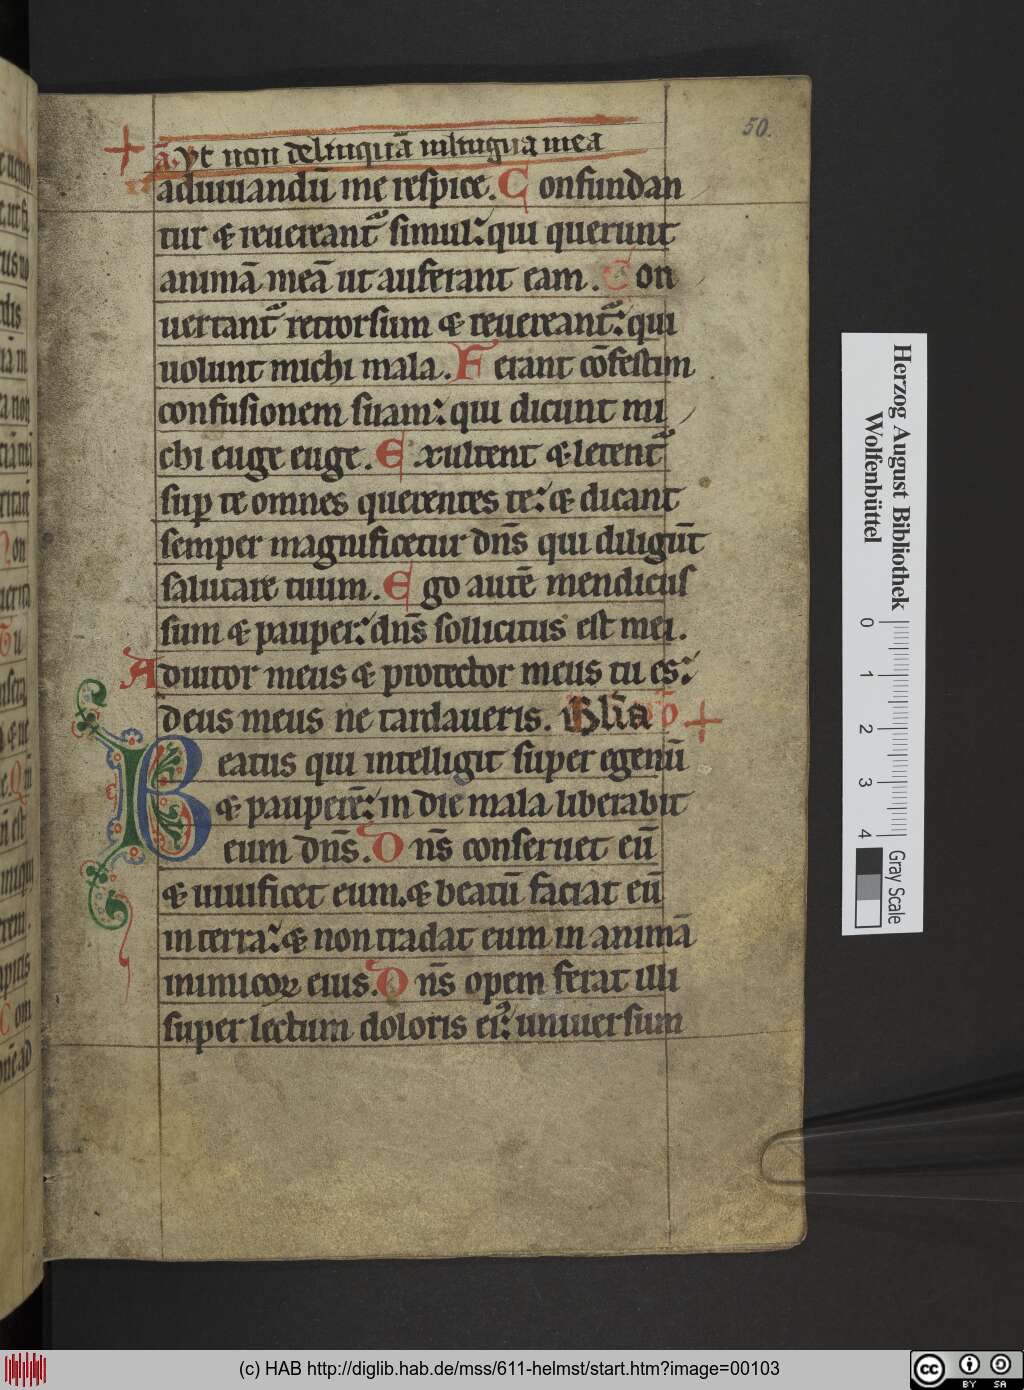 50.
a. Vt non delinquā in lingua mea
adiuuandū me respice. Confundan
tur & reuereant᷑ simul: qui querunt
animā meā ut auferant eam. Con
uertant᷑ retrorsum & reuereant᷑: qui
uolunt michi mala. Ferant cōfestim
confusionem suam: qui dicunt mi
chi euge euge. Exultent & letent᷑
sup te omnes querentes te: & dicant
semper magnificetur dn̄s qui diligūt
salutare tuum. Ego autē mendicus
sum & pauper: dn̄s sollicitus est mei.
Adiutor meus & protector meus tu es:
deus meus ne tardaueris. Gl̄ia
Beatus qui intelligit super egenū
& pauperē: in die mala liberabit
eum dn̄s. Dn̄s conseruet eū
& uiuificet eum. & beatū faciat eū
in terra: & non tradat eum in animā
inimicoꝝ eius. Dn̄s opem ferat illi
super lectum doloris ei᷒: uniuersum
Herzog August Bibliothek
Wolfenbüttel
0 1 2 3 4
Gray Scale
(c) HAB http://diglib.hab.de/mss/611-helmst/start.htm?image=00103
cc BY SA